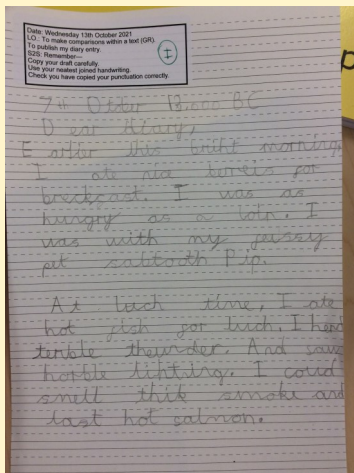 Date: Wednesday 13th October 2021
LO.: To make comparisons within a text (GR).
To publish my diary entry.
S2S: Remember—
Copy your draft carefully.
Use your neatest joined handwriting.
Check you have copied your punctuation correctly.
I
7th Otober 13,000 BC
Dear diary,
Earlier this briht morning,
I ate nice berreis for
breckfast. I was as
hungry as a I was with my
pet sabitooth Pip.
At luch time, I ate
hot fish for luch. I herd
terible theunder. And saw
horble lihtning. I could
smell thik smoke and
tast hot salmon.